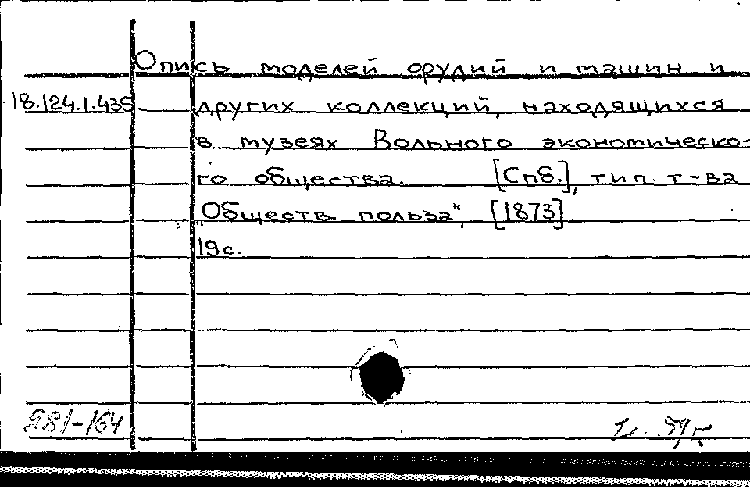 Опись моделей орудий и машин и
18.124.1.435 других коллекций, находящихся
в музеях Вольного экономическо-
го общества. [Спб.], тип. т-ва
"Обществ. польза", [1873]
19с.